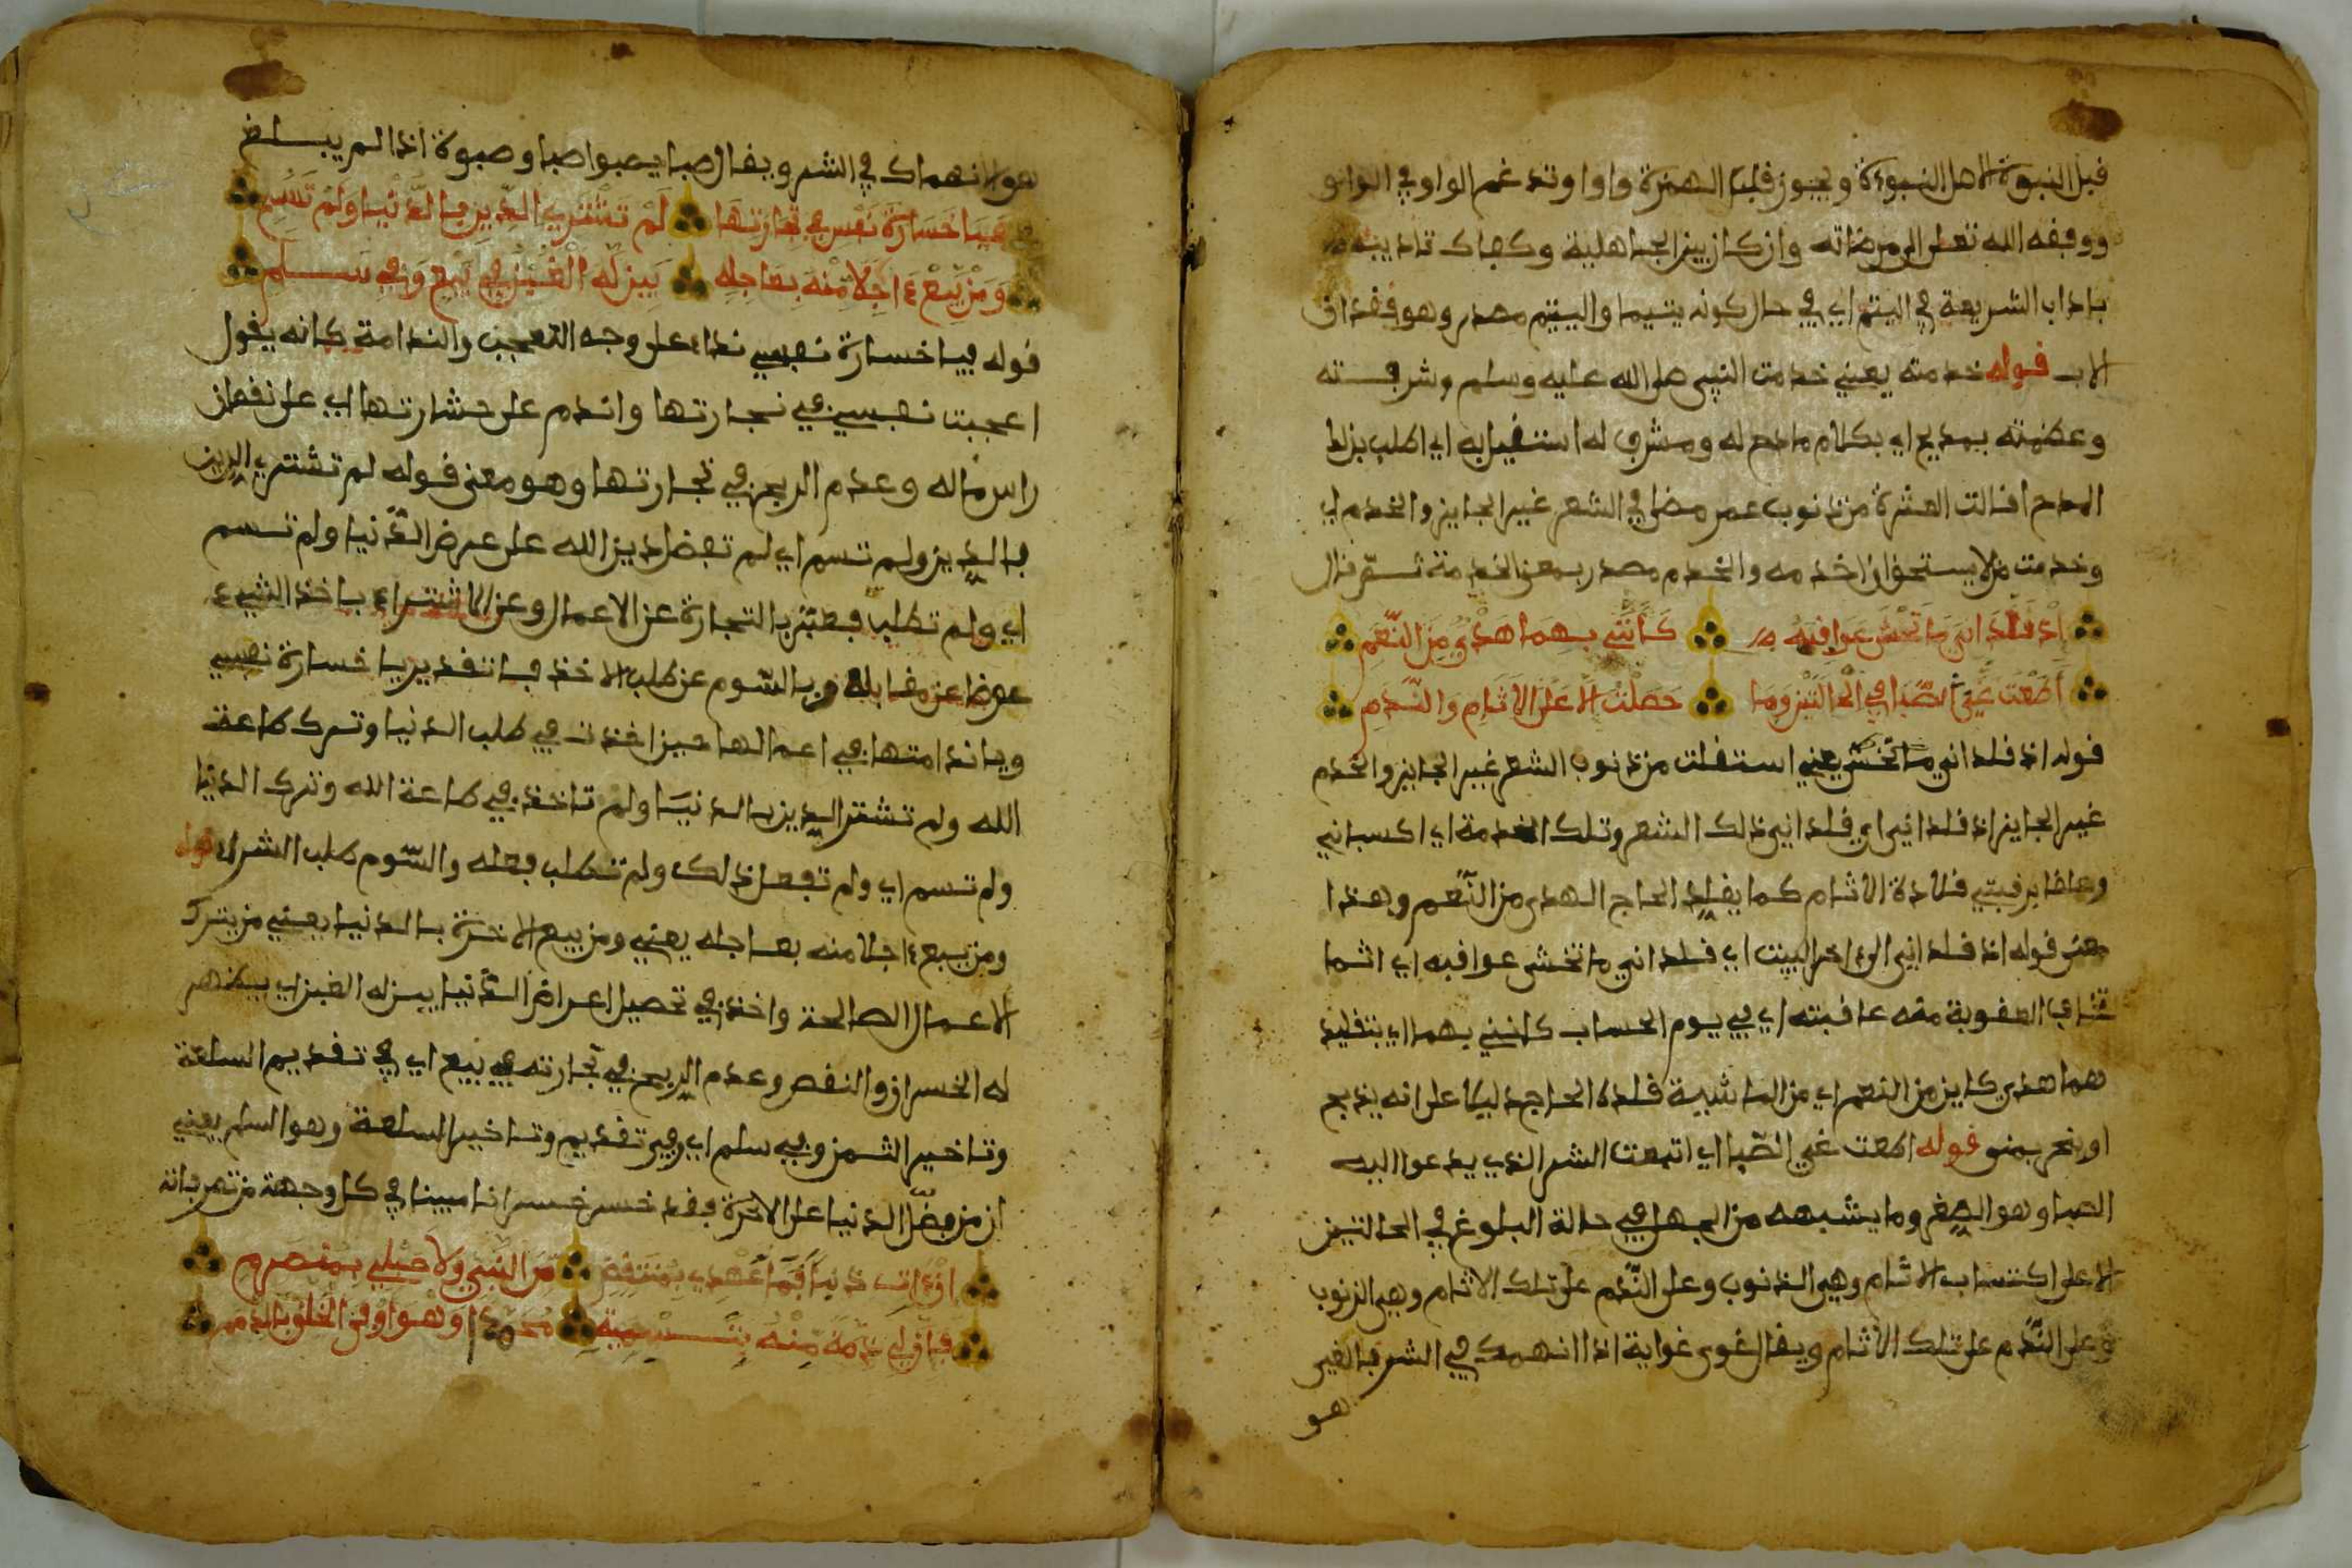 قبل النبوة الاصل النبوءة ويجوز قلب الهمزة واوا وتدغم الواو في الواو
ووفقه الله تعلى الى مرضاته وان كان بين الجاهلية وكفاك تاديبه
باداب الشريعة في اليتم اي في حال كونه يتيما واليتم مصدر وهو فقدان
الاب قوله خدمته يعني خدمت النبي صلى الله عليه وسلم وشرفته
وعظمته بمديح اي بكلام مادح له ومشرف له استقيل به اي اطلب بذلك
المدح اقالت العثرة من ذنوب عمر مضى في الشعر غير الجايز والخدم اي
وخدمت من لا يستحق ان اخدمه والخدم مصدر بمعنى الخدمة ثم قال
اذ قلداني ما تخشى عواقبه كانني بهما هدي من النعم
اطعت غي الصبا في الحالتين وما حصلت الا على الاثام والندم
قوله اذ قلداني ما تخشى يعني استقلت من ذنوب الشعر غير الجايز والخدم
غير الجايز اذ قلداني اي قلداني ذلك الشعر وتلك الخدمة اي اكسباني
برقبتي قلادة الاثام كما يقلد الحاج الهدي من النعم وهذا
معنى قوله اذ قلداني الى ءاخر البيت اي قلداني ما تخشى عواقبه اي اثما
تخاف العقوبة منه عاقبته اي في يوم الحساب كانني بهما اي بتقليد
هما هدي كاين من النعم اي من الماشية قلده الحاج دليلا على انه يذبح
او ينحر بمنى قوله اطعت غي الصبا اي اتبعت الشر الذي يدعوا اليه
الصبا وهو الصغر وما يشبهه من الجهل في حالة البلوغ في الحالتين
الا على اكتساب الاثام وهي الذنوب وعلى الندم على تلك الاثام وهي الذنوب
وعلى الندم على تلك الاثام ويقال غوى غواية اذا انهمك في الشر فالغي
هو
هو الانهماك في الشر ويقال صبا يصبوا صبا وصبوة اذا لم يبلغ
فيا خسارة نفس في تجارتها لم تشتري الدين بالدنيا ولم تسم
ومن يبع ءاجلا منه بعاجله يبن له الغبن في بيع وفي سلم
قوله فيا خسارة نفسي نداء على وجه التعجب والندامة كانه يقول
اعجبت نفسي في تجارتها واندم على خسارتها اي على نقصان
راس ماله وعدم الربح في تجارتها وهو معنى قوله لم تشتري الدين
بالدين ولم تسم اي لم تفضل دين الله على عرض الدنيا ولم تسم
اي ولم تطلب فعبر بالتجارة عن الاعمال وعن الاشتراء باخذ الشيء
عوضا عن مقابله وبالسوم عن طلب الاخذ فا تقدير يا خسارة نفسي
ويا ندامتها في اعمالها حين اخذت في طلب الدنيا وترك طاعة
الله ولم تشتر الدين بالدنيا ولم تاخذ في طاعة الله وترك الدنيا
ولم تسم اي ولم تفعل ذلك ولم تطلب فعله والسوم طلب الشراء قوله
ومن يبع ءاجلا منه بعاجله يعني ومن يبيع الاخرة بالدنيا يعني من يترك
الاعمال الصالحة واخذ في تحصيل اعراض الدنيا يبن له الغبن اي يظهر
له الخسران والنقص وعدم الربح في تجارته في بيع اي في تقديم السلعة
وتاخير الثمن وفي سلم اي وفي تقديم وتاخير السلعة وهو السلم يعني
ان من فضل الدنيا على الاخرة فقد خسر خسرانا مبينا في كل وجهة من تصرفاته
ان ءات ذنبا فما عهدي بمنتقض من النبي ولا حبلي بمنصرم
فان لي ذمة منه بتسميتي محمدا وهو اوفى الخلق بالذمم